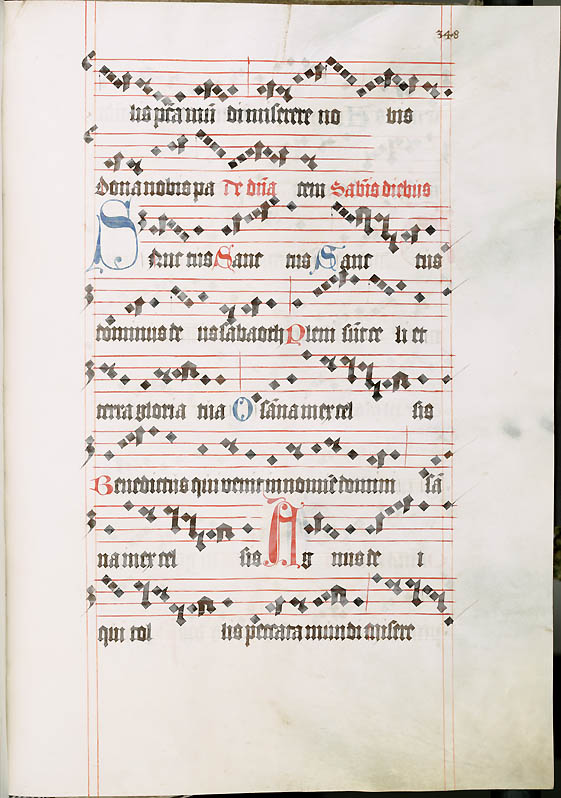 348
tis pctā mūdi miserere no bis
dona nobis pa De dn̄a cem Sab̄is diebus
Sanctus Sanc tus Sanc tus
dominus de us sabaoth Plem sūt ce li et
terra gloria tua Osāna in excel sis
Benedictus qui venit in nomīe domini Sā
na in excel sis Ag nus de i
qui tol lis peccata mundi misere